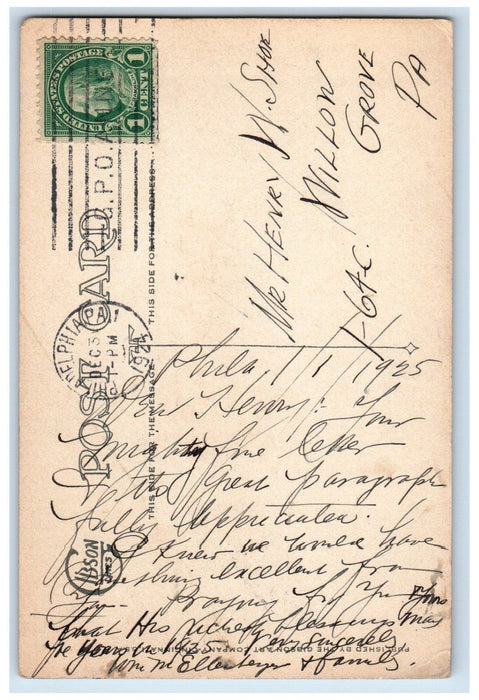 UNITED STATES POSTAGE
1 CENT 1
G.P.O.
PHILADELPHIA, PA.
DEC 3
1-PM
1924
POST CARD
THIS SIDE FOR THE ADDRESS
THIS SIDE FOR THE MESSAGE
GIBSON
LINES
PUBLISHED BY THE GIBSON ART COMPANY, CINCINNATI, U.S.A.
Mr HENRY W. SHOE
WILLOW
GROVE
PA
Phila, 1/1/1925
Dear Henry: Your
mighty fine letter
Great paragraph
fully Appreciated.
I knew we would have
something excellent from
you. Praying for You & Yours
that His richest blessings may
be yours in 1925. Very sincerely
Wm M Ellenberger & family